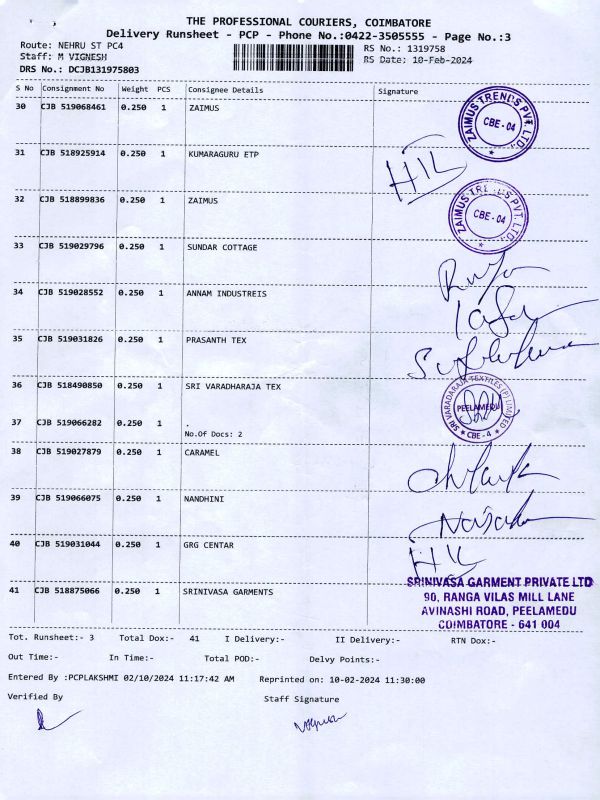 THE PROFESSIONAL COURIERS, COIMBATORE
Delivery Runsheet - PCP - Phone No.:0422-3505555 - Page No.:3
Route: NEHRU ST PC4
RS No.: 1319758
Staff: M VIGNESH
RS Date: 10-Feb-2024
DRS No.: DCJB131975803
S No Consignment No Weight PCS Consignee Details Signature
30 CJB 519068461 0.250 1 ZAIMUS
ZAIMUS TRENDS PVT. LTD.
CBE - 04
31 CJB 518925914 0.250 1 KUMARAGURU ETP
32 CJB 518899836 0.250 1 ZAIMUS
ZAIMUS TRENDS PVT. LTD.
CBE - 04
33 CJB 519029796 0.250 1 SUNDAR COTTAGE
34 CJB 519028552 0.250 1 ANNAM INDUSTREIS
35 CJB 519031826 0.250 1 PRASANTH TEX
36 CJB 518490850 0.250 1 SRI VARADHARAJA TEX
SRI VARADARAJA TEXTILES (P) LIMITED
PEELAMEDU
CBE - 4
37 CJB 519066282 0.250 1 .
No.Of Docs: 2
38 CJB 519027879 0.250 1 CARAMEL
39 CJB 519066075 0.250 1 NANDHINI
40 CJB 519031044 0.250 1 GRG CENTAR
41 CJB 518875066 0.250 1 SRINIVASA GARMENTS
SRINIVASA GARMENT PRIVATE LTD
90, RANGA VILAS MILL LANE
AVINASHI ROAD, PEELAMEDU
COIMBATORE - 641 004
Tot. Runsheet:- 3 Total Dox:- 41 I Delivery:- II Delivery:- RTN Dox:-
Out Time:- In Time:- Total POD:- Delvy Points:-
Entered By :PCPLAKSHMI 02/10/2024 11:17:42 AM Reprinted on: 10-02-2024 11:30:00
Verified By Staff Signature